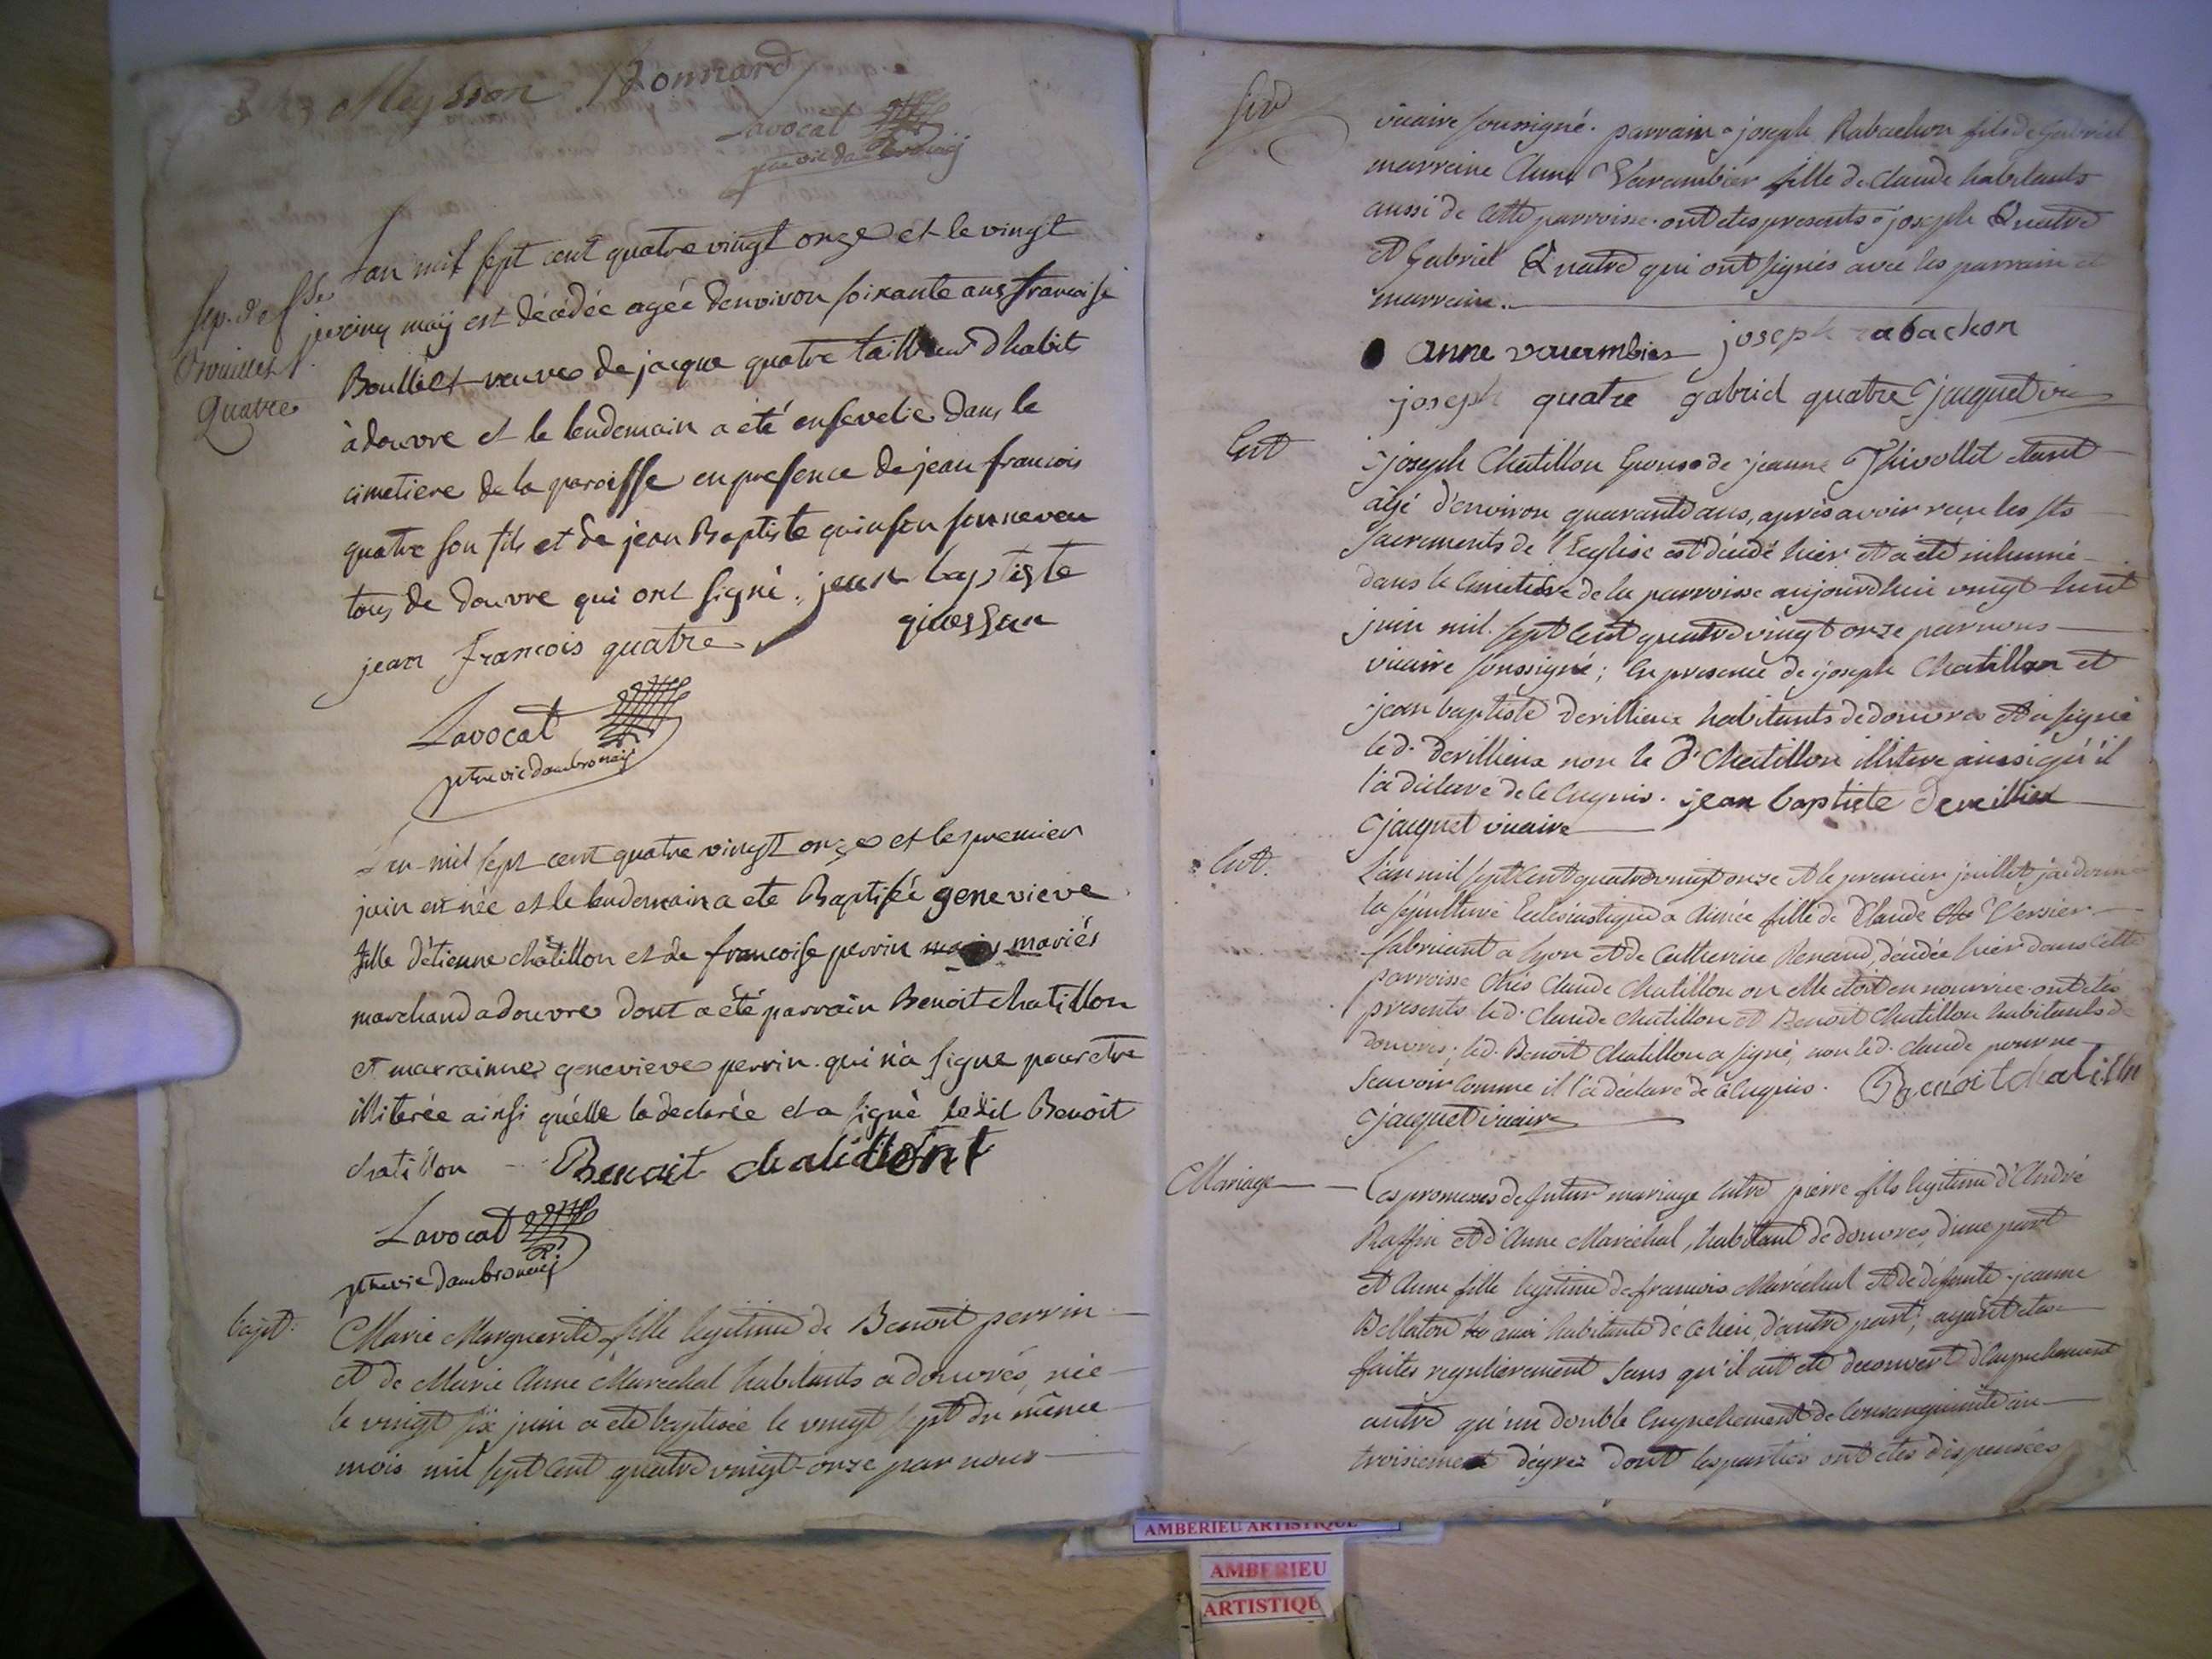 Meysson Bonnard
Lavocat
ptre vic dambronay
Lan mil sept cent quatre vingt onze et le vingt
cinq maÿ est décédée agée denviron soixante ans francoise
Boulliet veuve de jacque quatre tailleur dhabits
à douvre et le lendemain a été ensevelie dans le
cimetiere de la paroisse en presence de jean francois
quatre son fils et de jean Baptiste quinson son neveu
tous de douvre qui ont signé. jean baptiste
jean francois quatre
Lavocat
ptre vic dambronay
Sep. de fse
Quatre
Lan mil sept cent quatre vingt onze et le premier
juin est née et le lendemain a ete Baptisée genevieve
fille détienne chatillon et de francoise perrin mariés
marchand a douvre dont a été parrain Benoit chatillon
et marrainne genevieve perrin qui n'a signe pour etre
illiterée ainsi quelle la declarée et a signé ledit Benoit
chatillon Benoit chatillont
Lavocat
ptre vic dambronay
bapt:
Marie Marguerite fille legitime de Benoit perrin
et de Marie Anne Marechal habitants a douvres, née
le vingt six juin a ete baptisée le vingt sept du même
mois mil sept cent quatre vingt-onze par nous
vicaire soussigné. parrain joseph Rabachon fils de Gabriel
marraine Anne Varambier fille de Claude habitants
aussi de cette parroisse. ont etes presents joseph Quatre
et Gabriel Quatre qui ont signés avec les parrain et
marraine.
anne varambier joseph rabachon
joseph quatre gabriel quatre jacquet vic
Ent
joseph Chatillon Epoux de jeanne Thivollet etant
âgé d'environ quarante ans, après avoir reçu les sts
Sacrements de l'Eglise est décédé hier et a été inhumé
dans le Cimetière de la parroisse aujourdhui vingt-huit
juin mil sept Cent quatre vingt onze par nous
vicaire soussigné; En presence de joseph Chatillon et
jean baptiste Derillieux habitants de douvres et a signé
led. Derillieux non le d. Chatillon illitere ainsi qu'il
l'a déclaré de ce Enquis. jean baptiste
jacquet vicaire
Ent.
L'an mil sept Cent quatre vingt onze et le premier juillet j'ai donné
la sépulture Ecclésiastique a Aimée fille de Claude Versier
fabricant a Lyon et de Catherine Renaud, décédée hier dans Cette
parroisse chés Claude Chatillon ou elle étoit en nourrice. ont etés
presents led. Claude Chatillon et Benoit Chatillon habitants de
douvres; led. Benoit Chatillon a signé, non led. Claude pour ne
Scavoir Comme il l'a déclaré de ce Enquis. Benoit chatillon
jacquet vicaire
Mariage
Les promesses de futur mariage entre pierre fils legitime d'André
Raffin et d'Anne Maréchal, habitant de douvres, d'une part
et Anne fille legitime de francois Maréchal et de défunte jeanne
Bellaton aussi habitante de ce lieu, d'autre part; ayant etes
faites regulierement Sans qu'il ait été decouvert d'Empechement
autre qu'un double Empechement de Consanguinité au
troisieme degrez dont les parties ont etés dispensées
AMBERIEU ARTISTIQUE
AMBERIEU
ARTISTIQUE